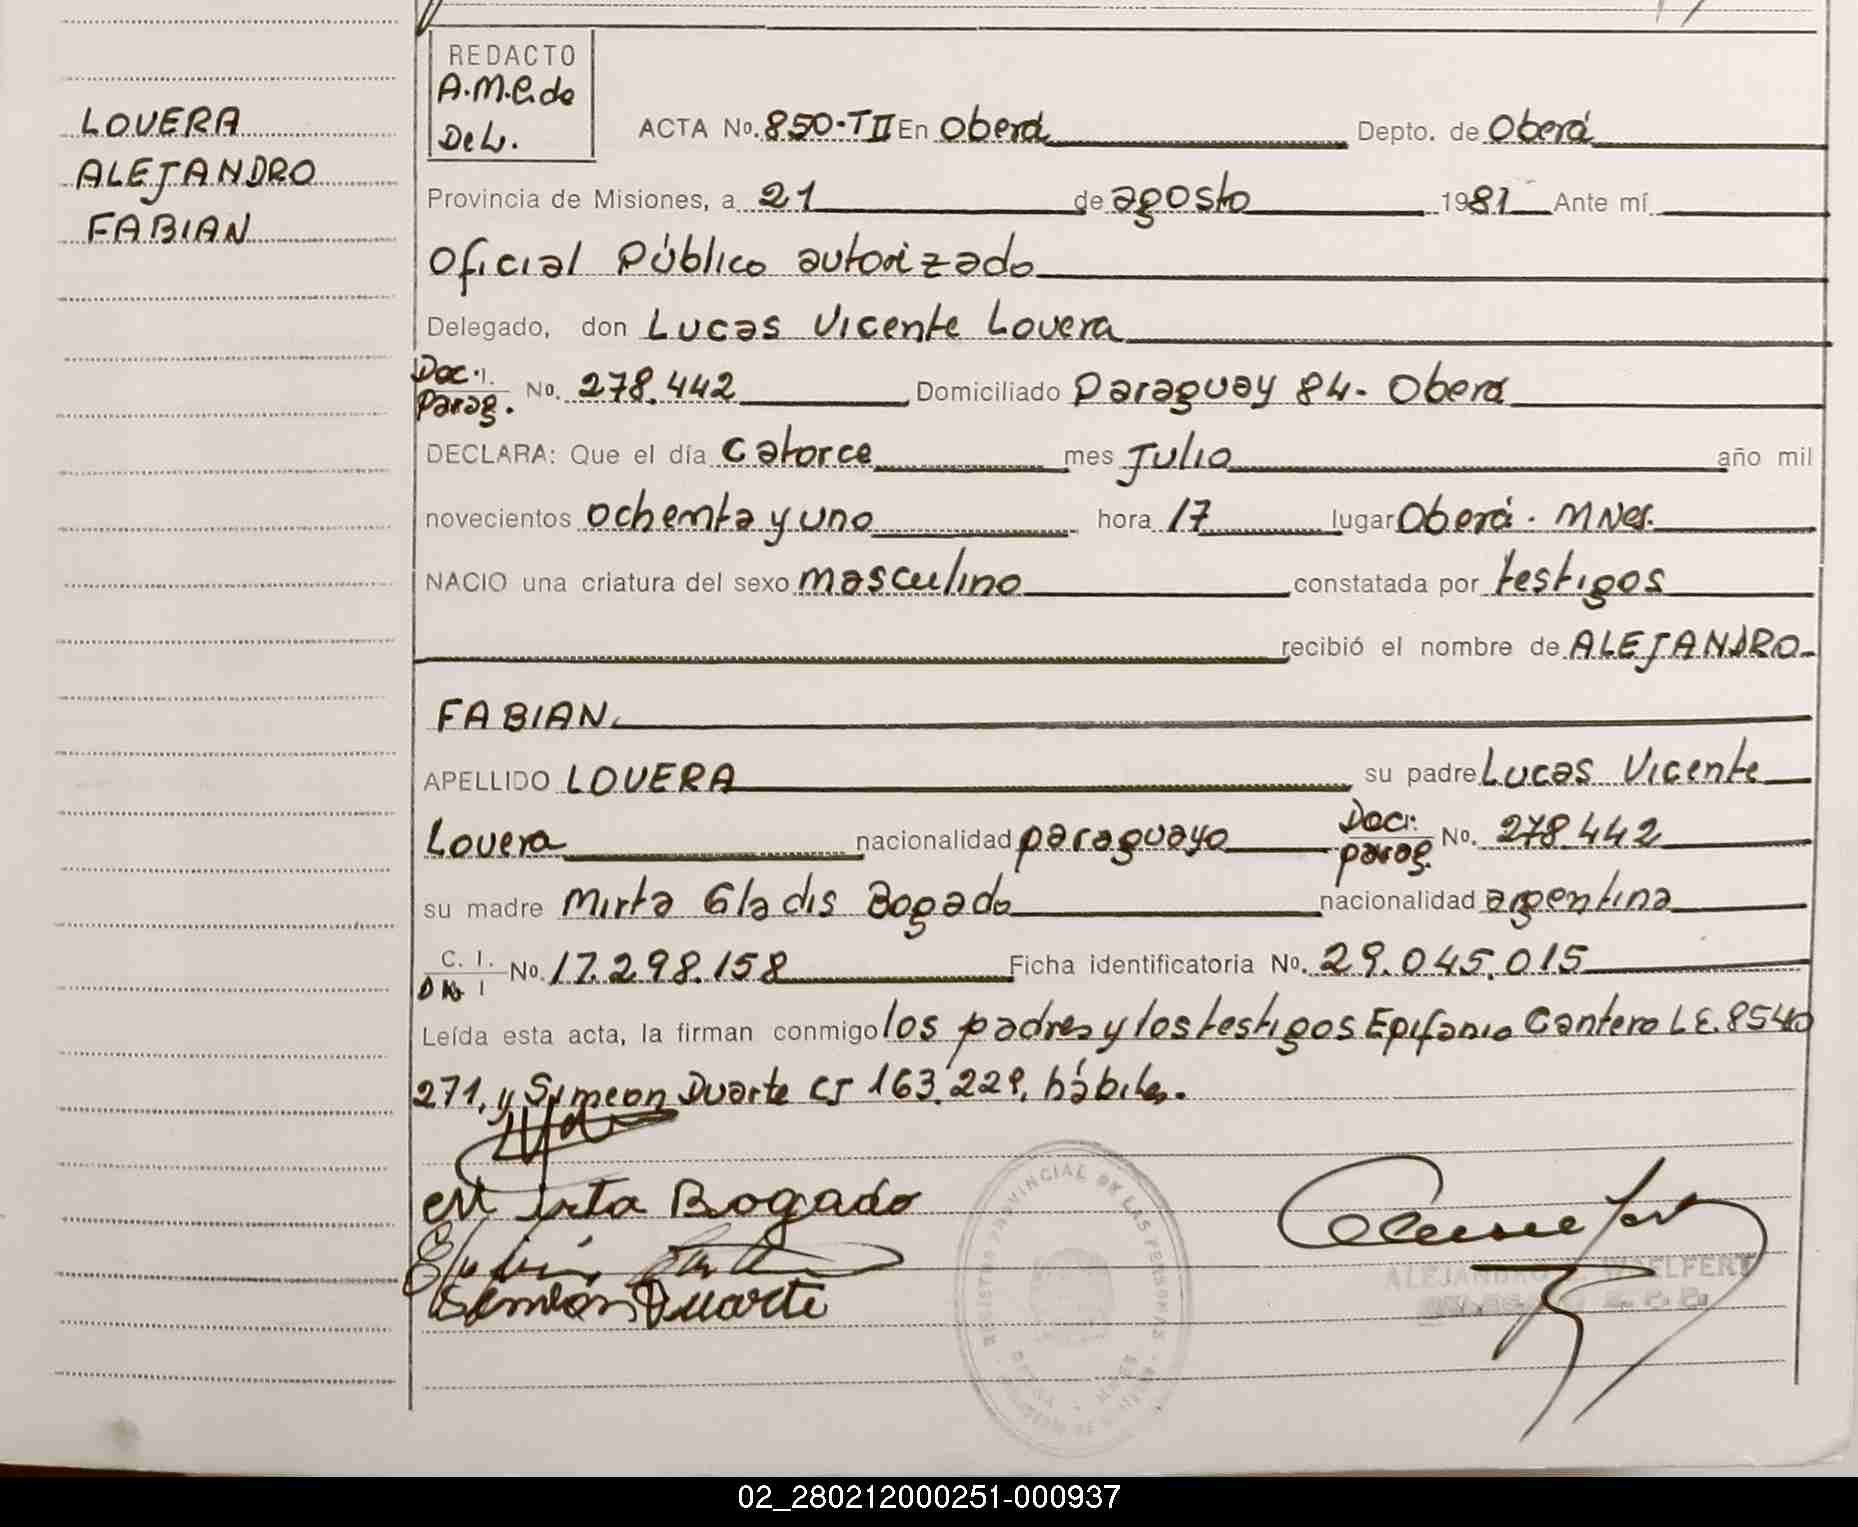 LOVERA
ALEJANDRO
FABIAN
REDACTO
A.M.C. de
De L.
ACTA No. 850-TII En Oberá Depto. de Oberá
Provincia de Misiones, a 21 de agosto 1981 Ante mí
Oficial Público autorizado
Delegado, don Lucas Vicente Lovera
Doc. I. Parag. No. 278.442 Domiciliado Paraguay 84- Oberá
DECLARA: Que el día catorce mes Julio año mil
novecientos ochenta y uno hora 17 lugar Oberá. MNes.
NACIO una criatura del sexo masculino constatada por testigos
recibió el nombre de ALEJANDRO
FABIAN
APELLIDO LOVERA su padre Lucas Vicente
Lovera nacionalidad paraguayo Doc. parag. No. 278.442
su madre Mirta Gladis Bogado nacionalidad argentina
C. I. DNI No. 17.298.158 Ficha identificatoria No. 29.045.015
Leída esta acta, la firman conmigo los padres y los testigos Epifanio Cantero L.E. 8540
271, y Simeon Duarte CI 163.229, hábiles.
Mirta Bogado
Simeón Duarte
REGISTRO PROVINCIAL DE LAS PERSONAS
ALEJANDRO WAELFERT
02_280212000251-000937